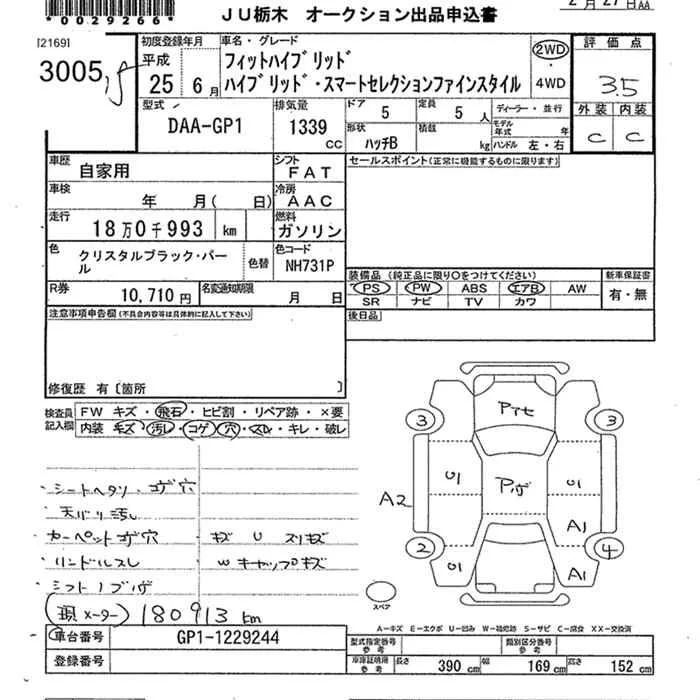 *0029266*
JU栃木 オークション出品申込書
2月27日AA
[2169]
3005
初度登録年月
平成
25 6月
車名・グレード
フィットハイブリッド
ハイブリッド・スマートセレクションファインスタイル
2WD
4WD
評価点
3.5
外装 内装
C C
型式
DAA-GP1
排気量
1339
CC
ドア 5
定員 5 人
形状 ハッチB
積載 kg
ディーラー・並行
モデル年式 年
ハンドル 左・右
車歴
自家用
シフト
FAT
セールスポイント(正常に機能するものに限ります)
車検
年 月( 日)
冷房
AAC
走行
18万0千993 km
燃料
ガソリン
色
クリスタルブラック・パール
色替
色コード
NH731P
装備品 (純正品に限り○をつけてください)
PS PW ABS エアB AW
SR ナビ TV カワ
新車保証書
有・無
R券
10,710円
名変通知期限
月 日
後日品
注意事項申告欄(不具合内容等は具体的に記入して下さい)
修復歴 有〔箇所 〕
検査員記入欄
FW キズ・飛石・ヒビ割・リペア跡・×要
内装 キズ・汚レ・コゲ・穴・スレ・キレ・破レ
・シートヘタリ・コゲ穴
天バリ汚レ
カーペットコゲ穴 ・キズ U スリキズ
・ハンドルスレ W キャップキズ
シフトノブハゲ
(現メーター) 180913 km
車台番号
GP1-1229244
登録番号
3 3
Pトセ
U1 Pハゲ U1
A2
A1
2 4
U1 A1
スペア
A-キズ E-エクボ U-凹み W-補修跡 S-サビ C-腐食 XX-交換済
型式指定番号 参考
類別区分番号 参考
車庫証明用 参考
長さ 390 cm
幅 169 cm
高さ 152 cm